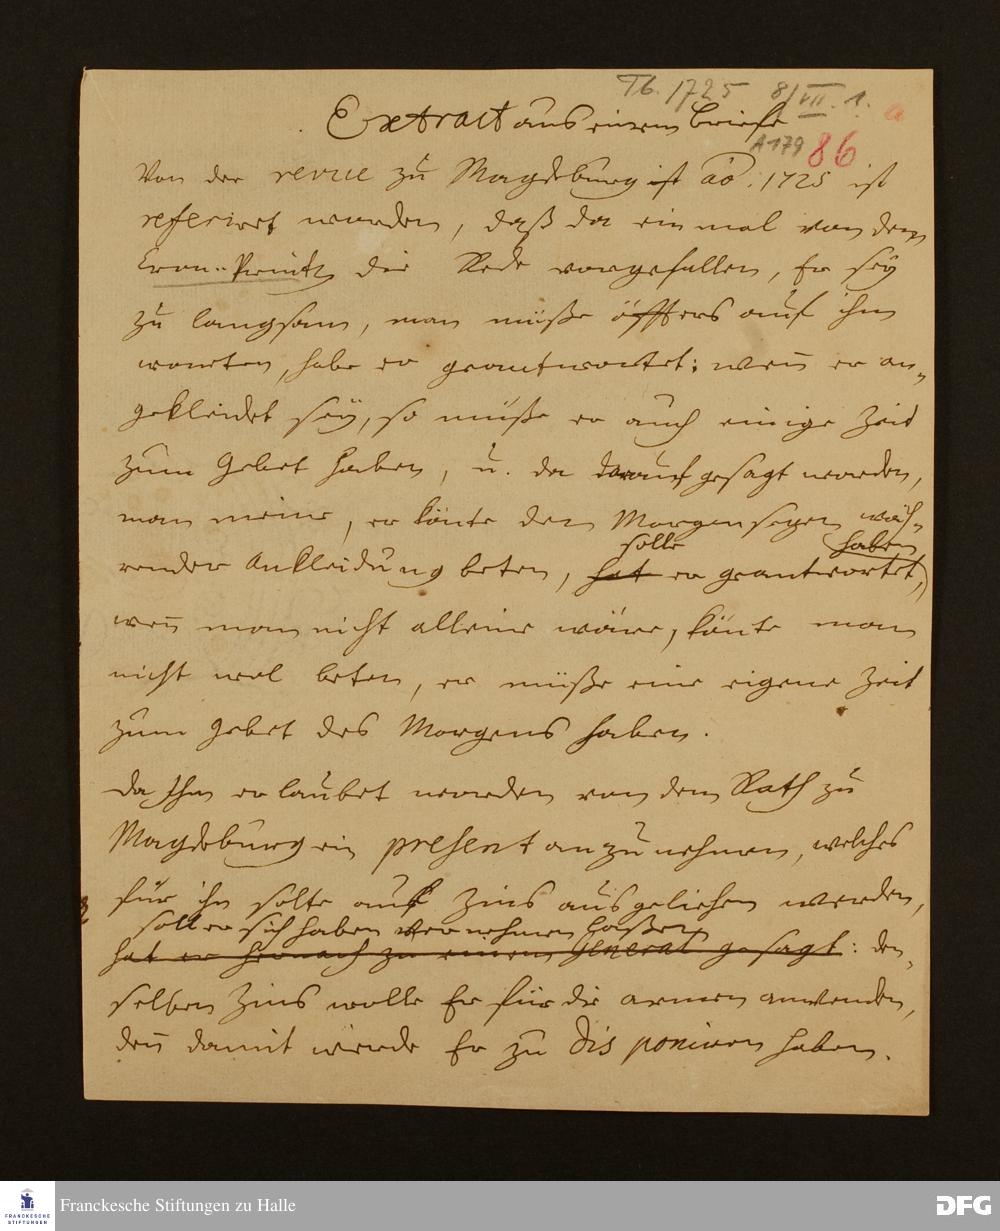 Tb. 1725 8/VII. 1. a
A 179 86
Extract aus einem Briefe
Von der revue zu Magdeburg ist ao. 1725 ist
referiret worden, daß da ein mal von dem
Cron-Printz die Rede vorgefallen, Er sey
zu langsam, man müße öffters auf ihn
warten, habe er geantwortet: wen̄ er an„
gekleidet seÿ, so müße er auch einige Zeit
zum Gebet haben, u. da darauf gesagt worden,
man meine, er könte den Morgensegen wäh„
render Ankleidung beten, hat er geantwortet,
solle haben
wen̄ man nicht alleine wäre, könte man
nicht wol beten, er müße eine eigene Zeit
zum Gebet des Morgens haben.
Da Ihm erlaubet worden von dem Rath zu
Magdeburg ein present anzunehmen, welches
für ihn solte auf Zins ausgeliehen werden,
soll er sich haben vernehmen laßen
hat er hernach zu einem General gesagt: den„
selben Zins wolle Er für die armen anwenden,
den̄ damit würde Er zu disponiren haben.
Franckesche Stiftungen zu Halle
FRANCKESCHE
STIFTUNGEN
DFG